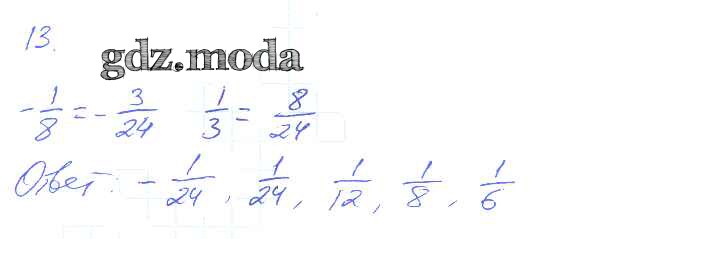 13.
gdz.moda
-1/8 = -3/24 1/3 = 8/24
Ответ: -1/24, 1/24, 1/12, 1/8, 1/6